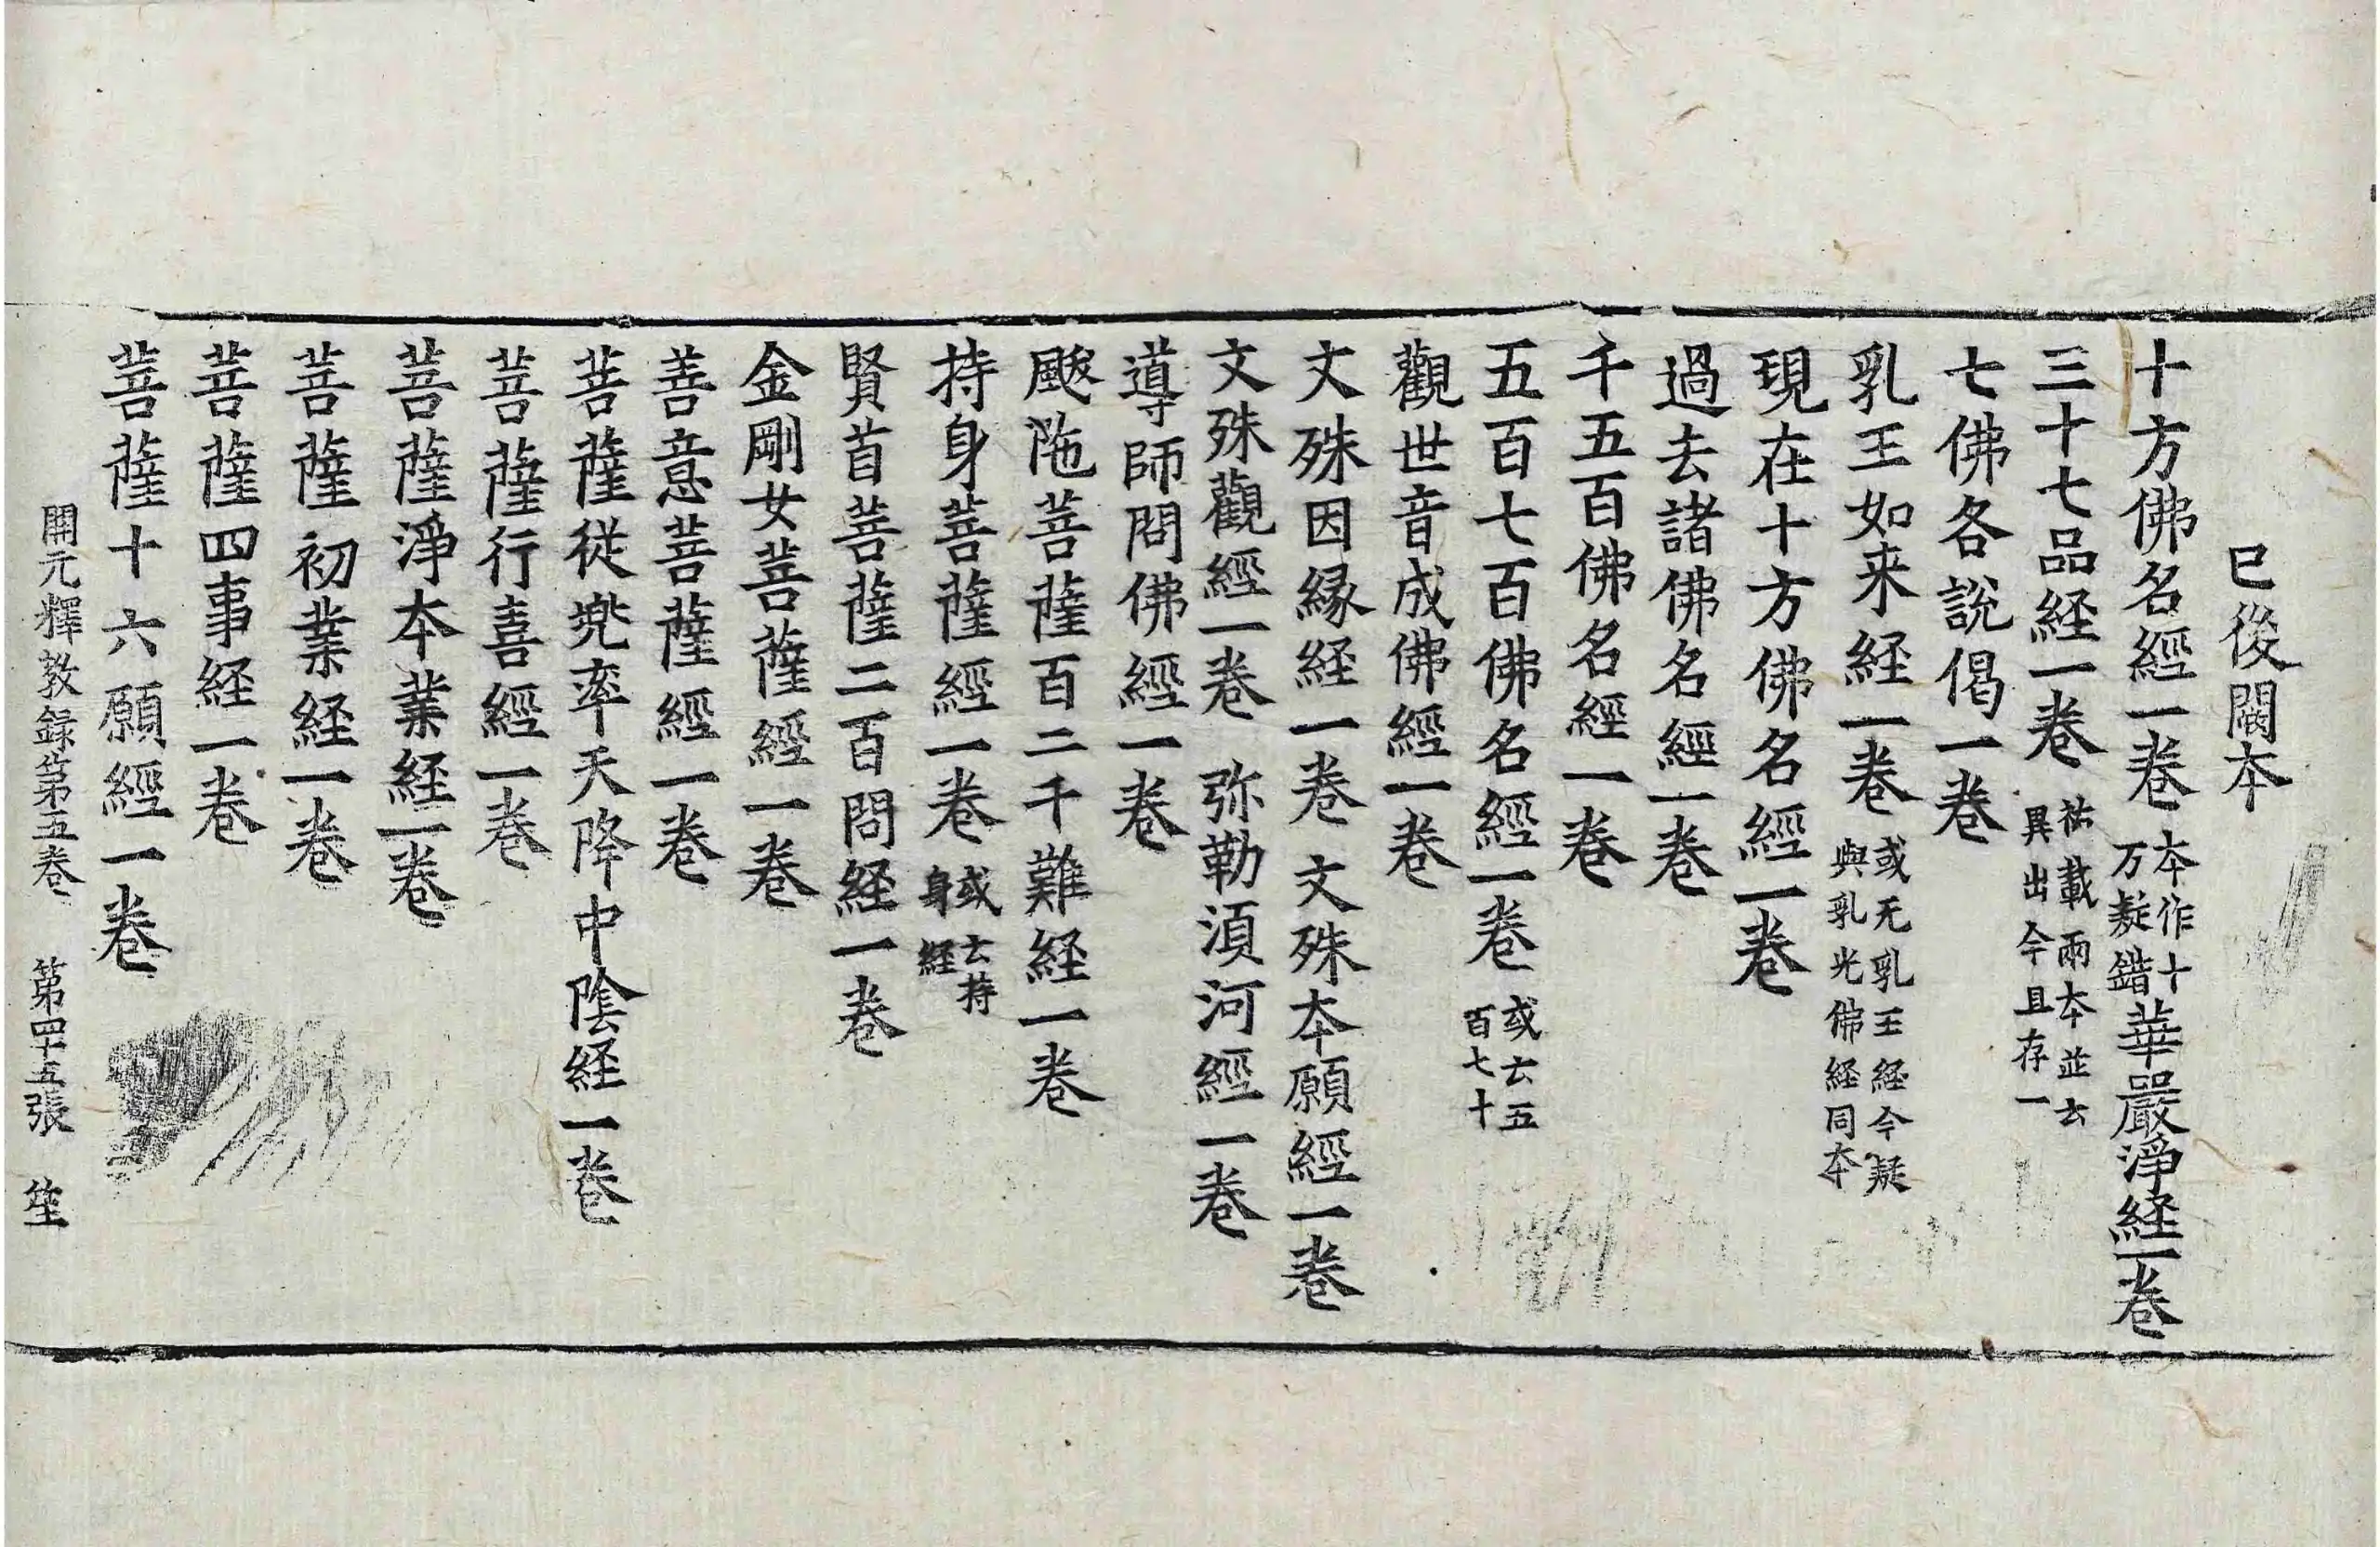 已後闕本
十方佛名經一卷本作十万疑錯華嚴淨経一卷
三十七品経一卷祐載兩本並云異出今且存一
七佛各說偈一卷
乳王如来経一卷或无乳王経今疑與乳光佛経同本
現在十方佛名經一卷
過去諸佛名經一卷
千五百佛名經一卷
五百七百佛名經一卷或云五百七十
觀世音成佛經一卷
文殊因緣経一卷 文殊本願經一卷
文殊觀經一卷 弥勒湏河經一卷
導師問佛經一卷
颰陁菩薩百二千難経一卷
持身菩薩經一卷或云持身経
賢首菩薩二百問経一卷
金剛女菩薩經一卷
善意菩薩經一卷
菩薩從兜率天降中陰経一卷
菩薩行喜經一卷
菩薩淨本業経一卷
菩薩初業経一卷
菩薩四事経一卷
菩薩十六願經一卷
開元釋教録第五卷 第四十五張 笙